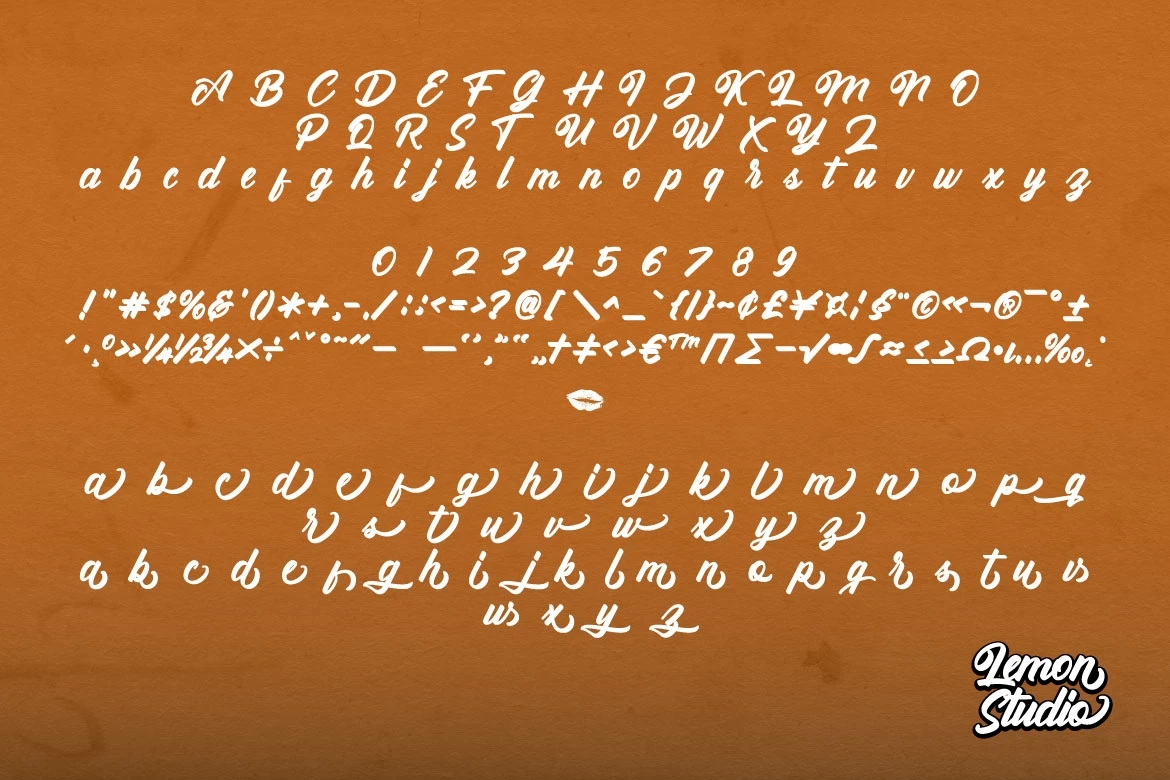 A B C D E F G H I J K L M N O
P Q R S T U V W X Y Z
a b c d e f g h i j k l m n o p q r s t u v w x y z
0 1 2 3 4 5 6 7 8 9
!"#$%&'()*+,-./:;<=>?@[\^_`{|}~¢£¥¤¦§¨©«¬®¯°±
´·¸º»¼½¾×÷ˆˇ˚˜˝– —‘’‚”“„†‡‹›€™∏∑−√∞∫≈≤≥Ω•ı…‰˛˙
a b c d e f g h i j k l m n o p q
r s t u v w x y z
a b c d e f g h i j k l m n o p q r s t u v
w x y z
Lemon
Studio